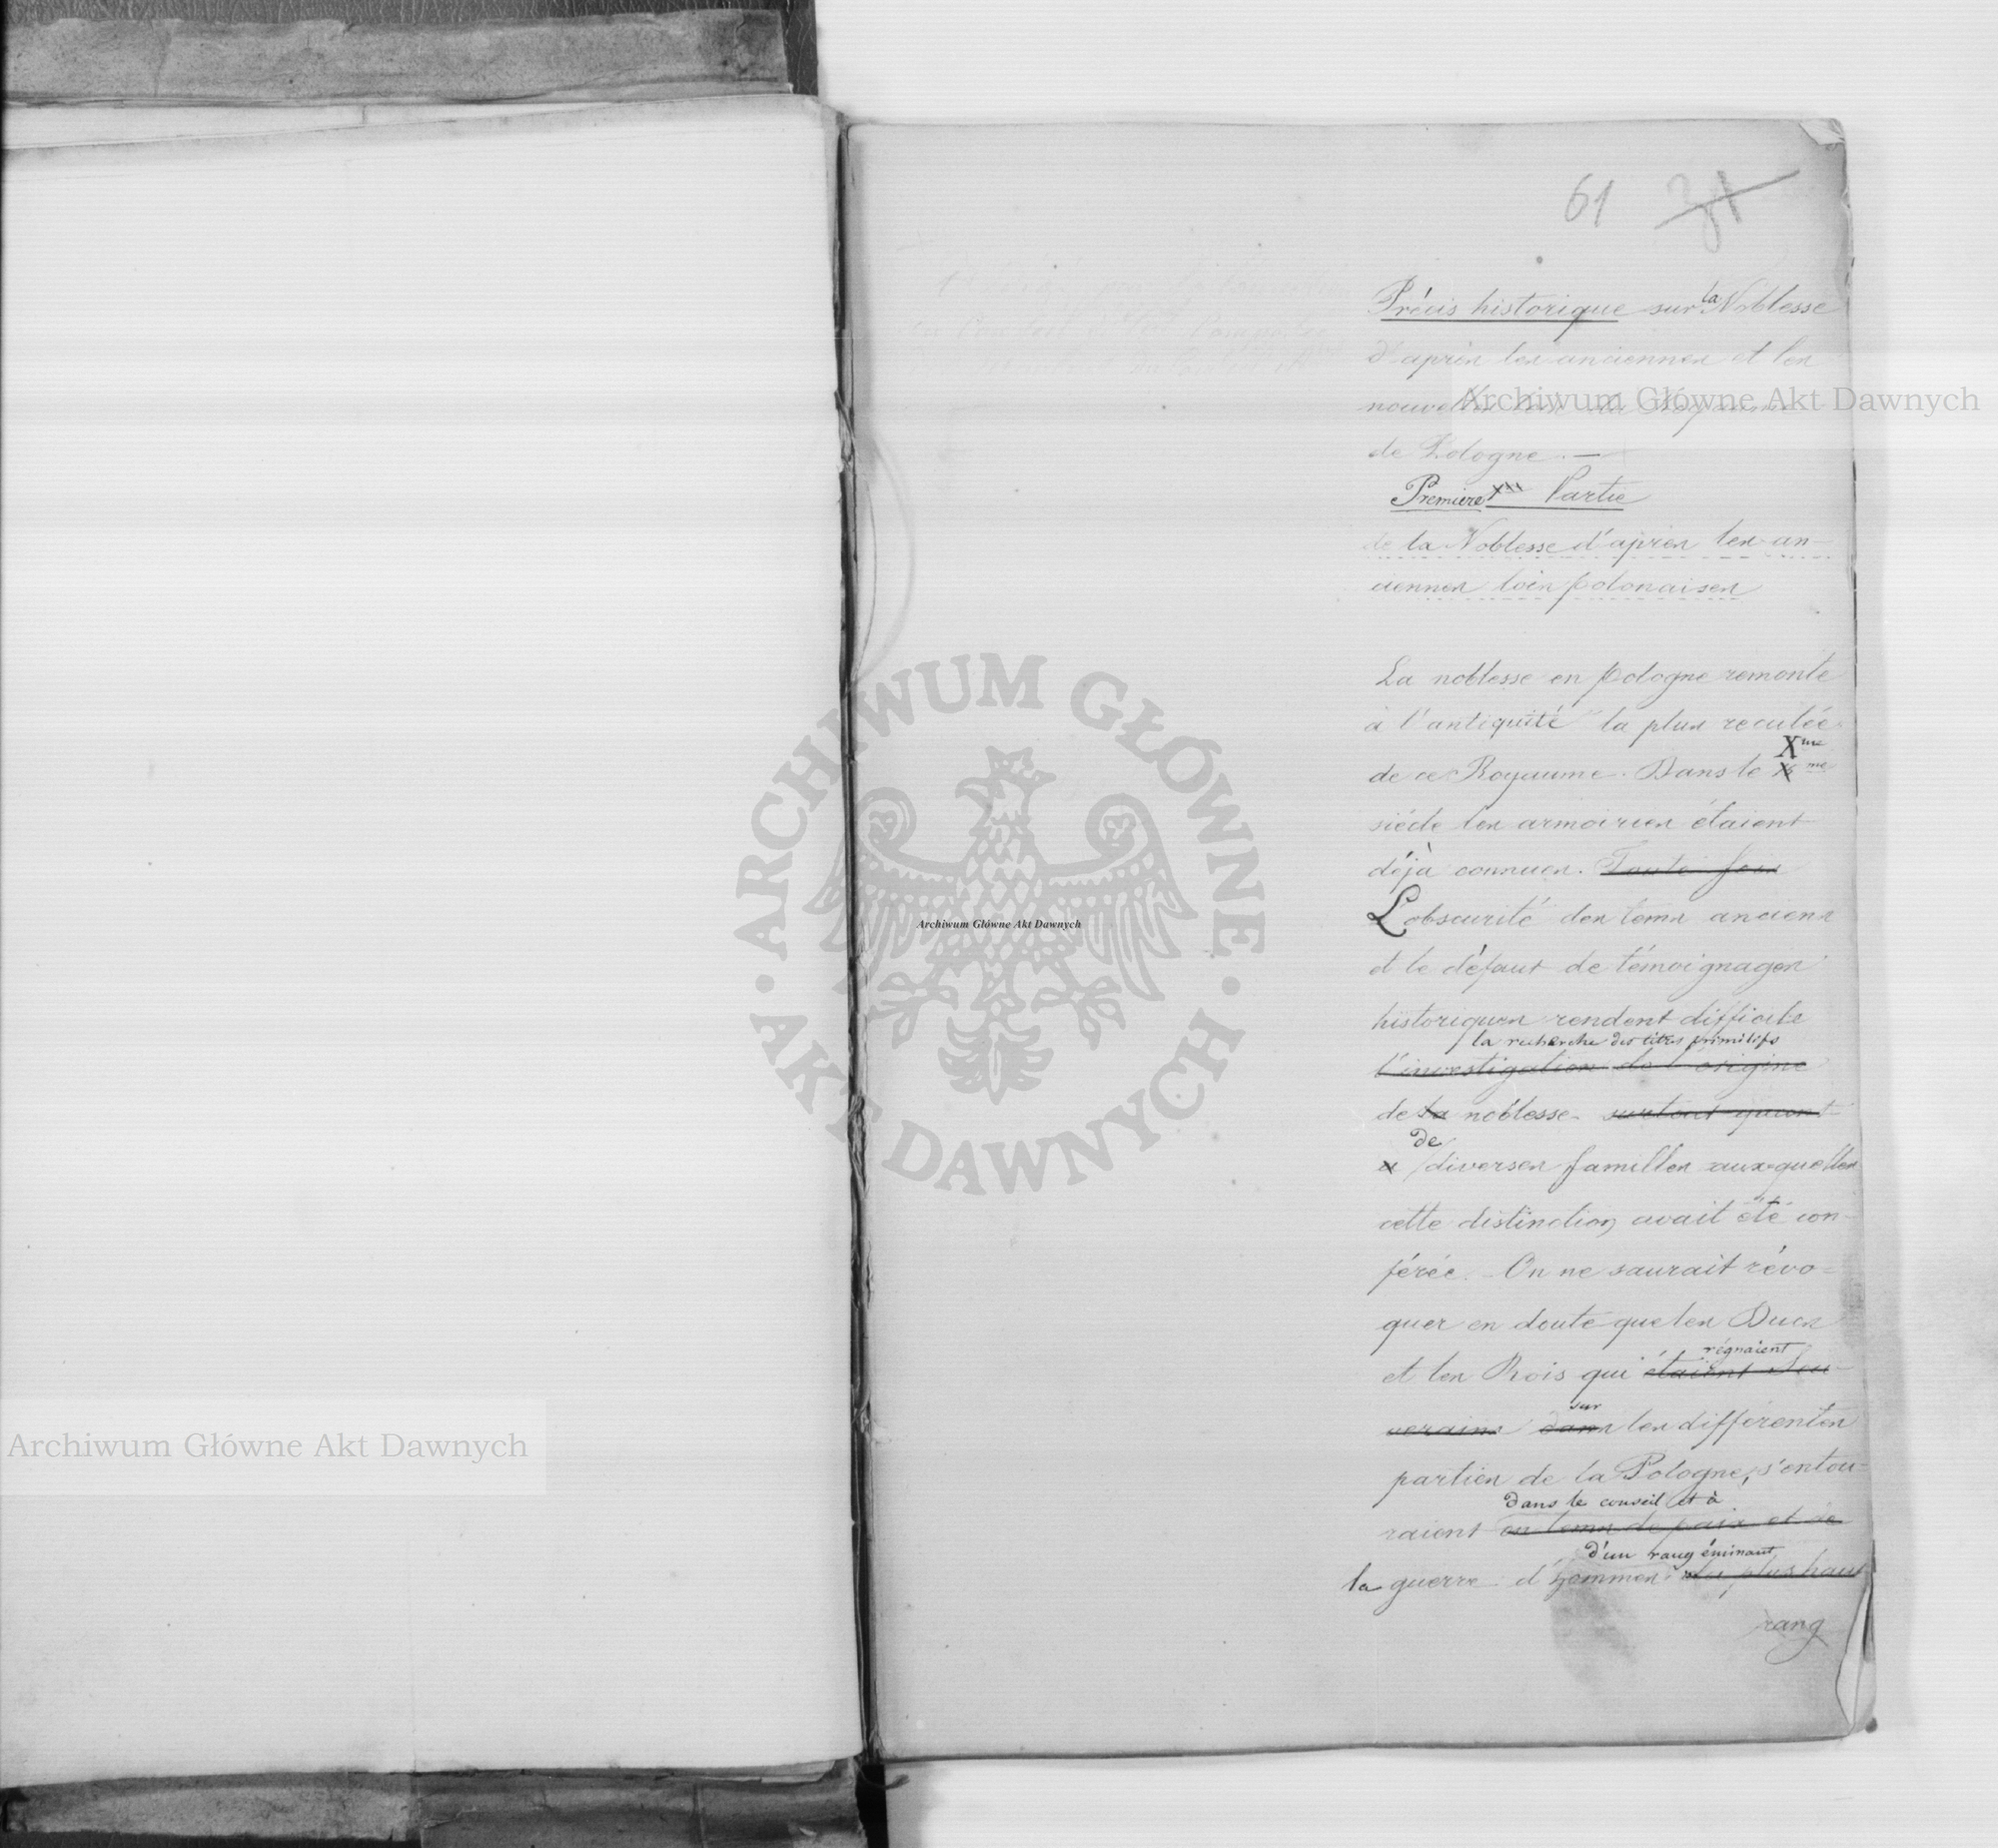 61 31
Précis historique sur la Noblesse
d'après les anciennes et les
nouvelles lois du Royaume
de Pologne. —
Première Partie
de la Noblesse d'après les an-
ciennes lois polonaises
La noblesse en pologne remonte
à l'antiquité la plus reculée
de ce Royaume. Dans le X me Xme
siécle les armoiries étaient
déjà connues. Toute fois
L'obscurité des tems anciens
et le défaut de témoignages
historiques rendent difficile
la recherche des titres primitifs
l'investigation de l'origine
de la noblesse surtout quant
de
a diverses familles aux-quelles
cette distinction avait été con-
férée. - On ne saurait révo-
quer en doute que les Ducs
régnaient
et les Rois qui étaient Sou-
sur
verains dans les différentes
parties de la Pologne, s'entou-
dans le conseil et à
raient en tems de paix et de
d'un rang éminant
la guerre d'hommes du plus haut
rang
Archiwum Główne Akt Dawnych
ARCHIWUM GŁÓWNE
· AKT DAWNYCH ·
Archiwum Główne Akt Dawnych
Archiwum Główne Akt Dawnych